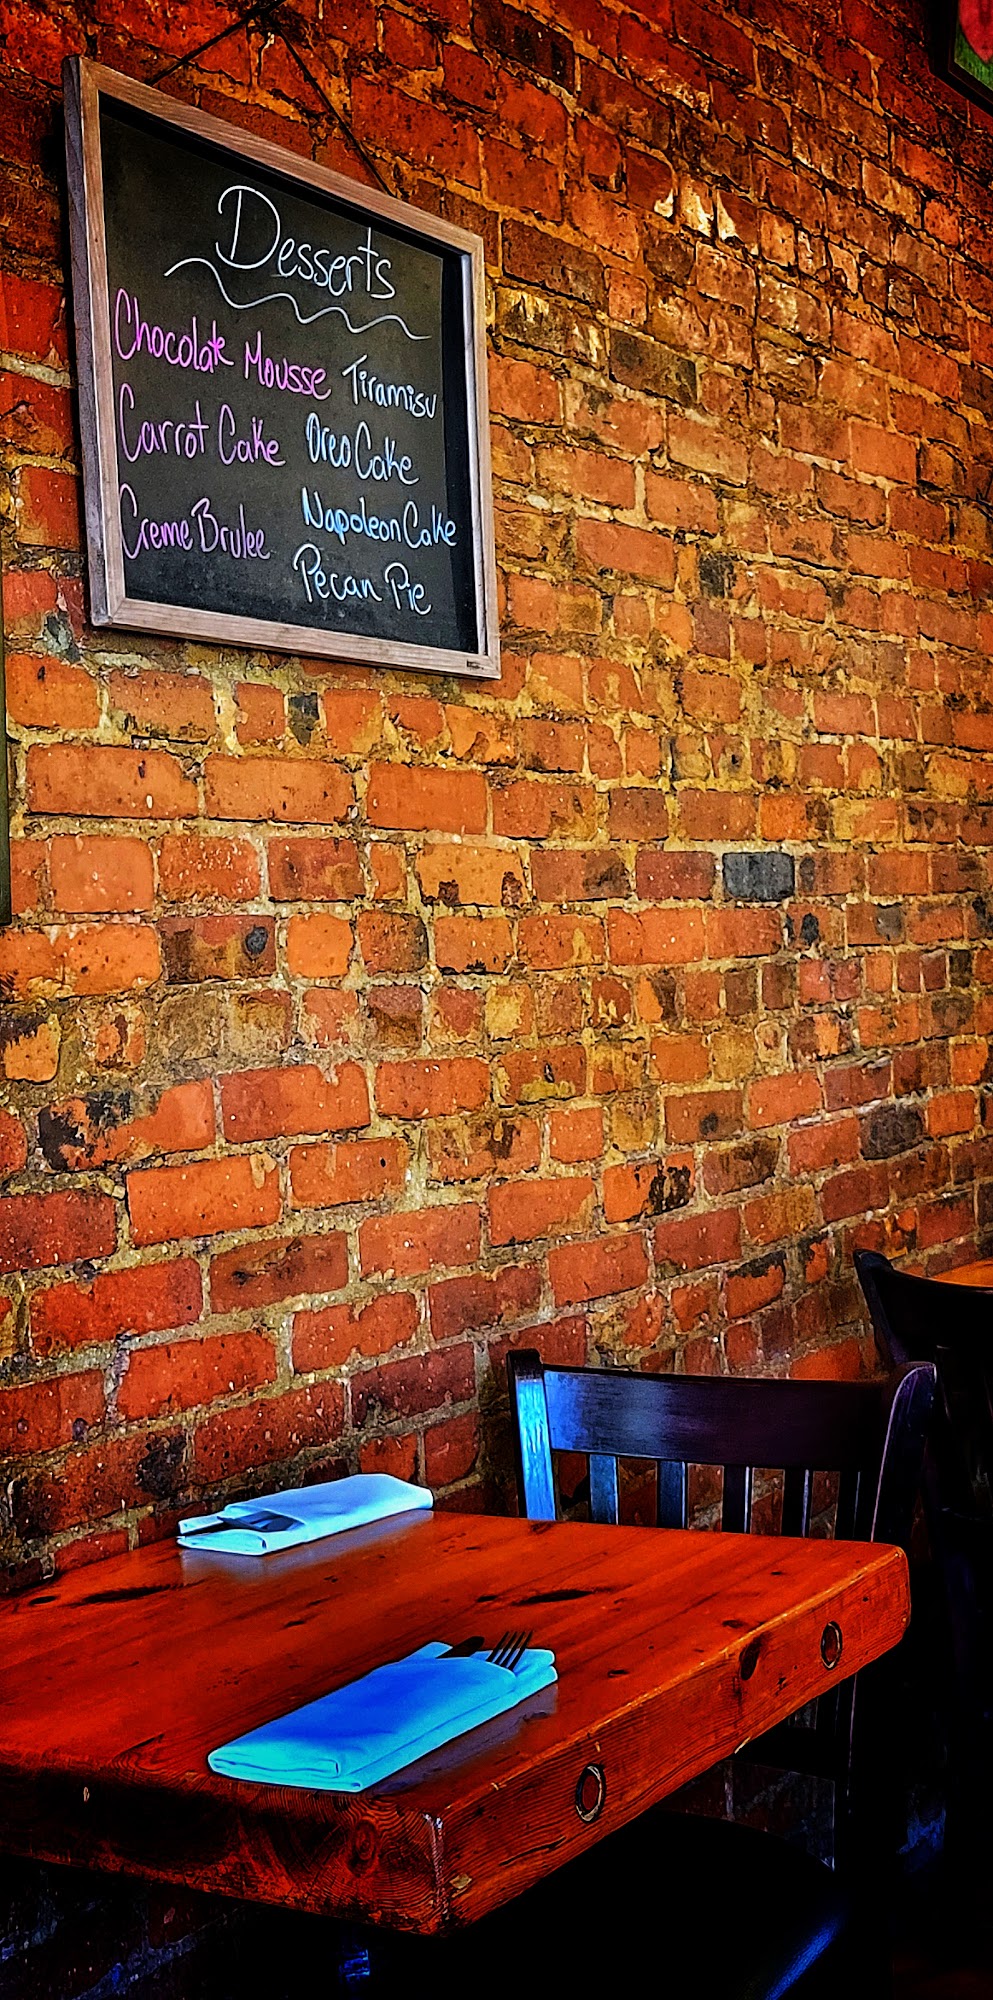 Desserts
Chocolate Mousse
Carrot Cake
Creme Brulee
Tiramisu
Oreo Cake
Napoleon Cake
Pecan Pie